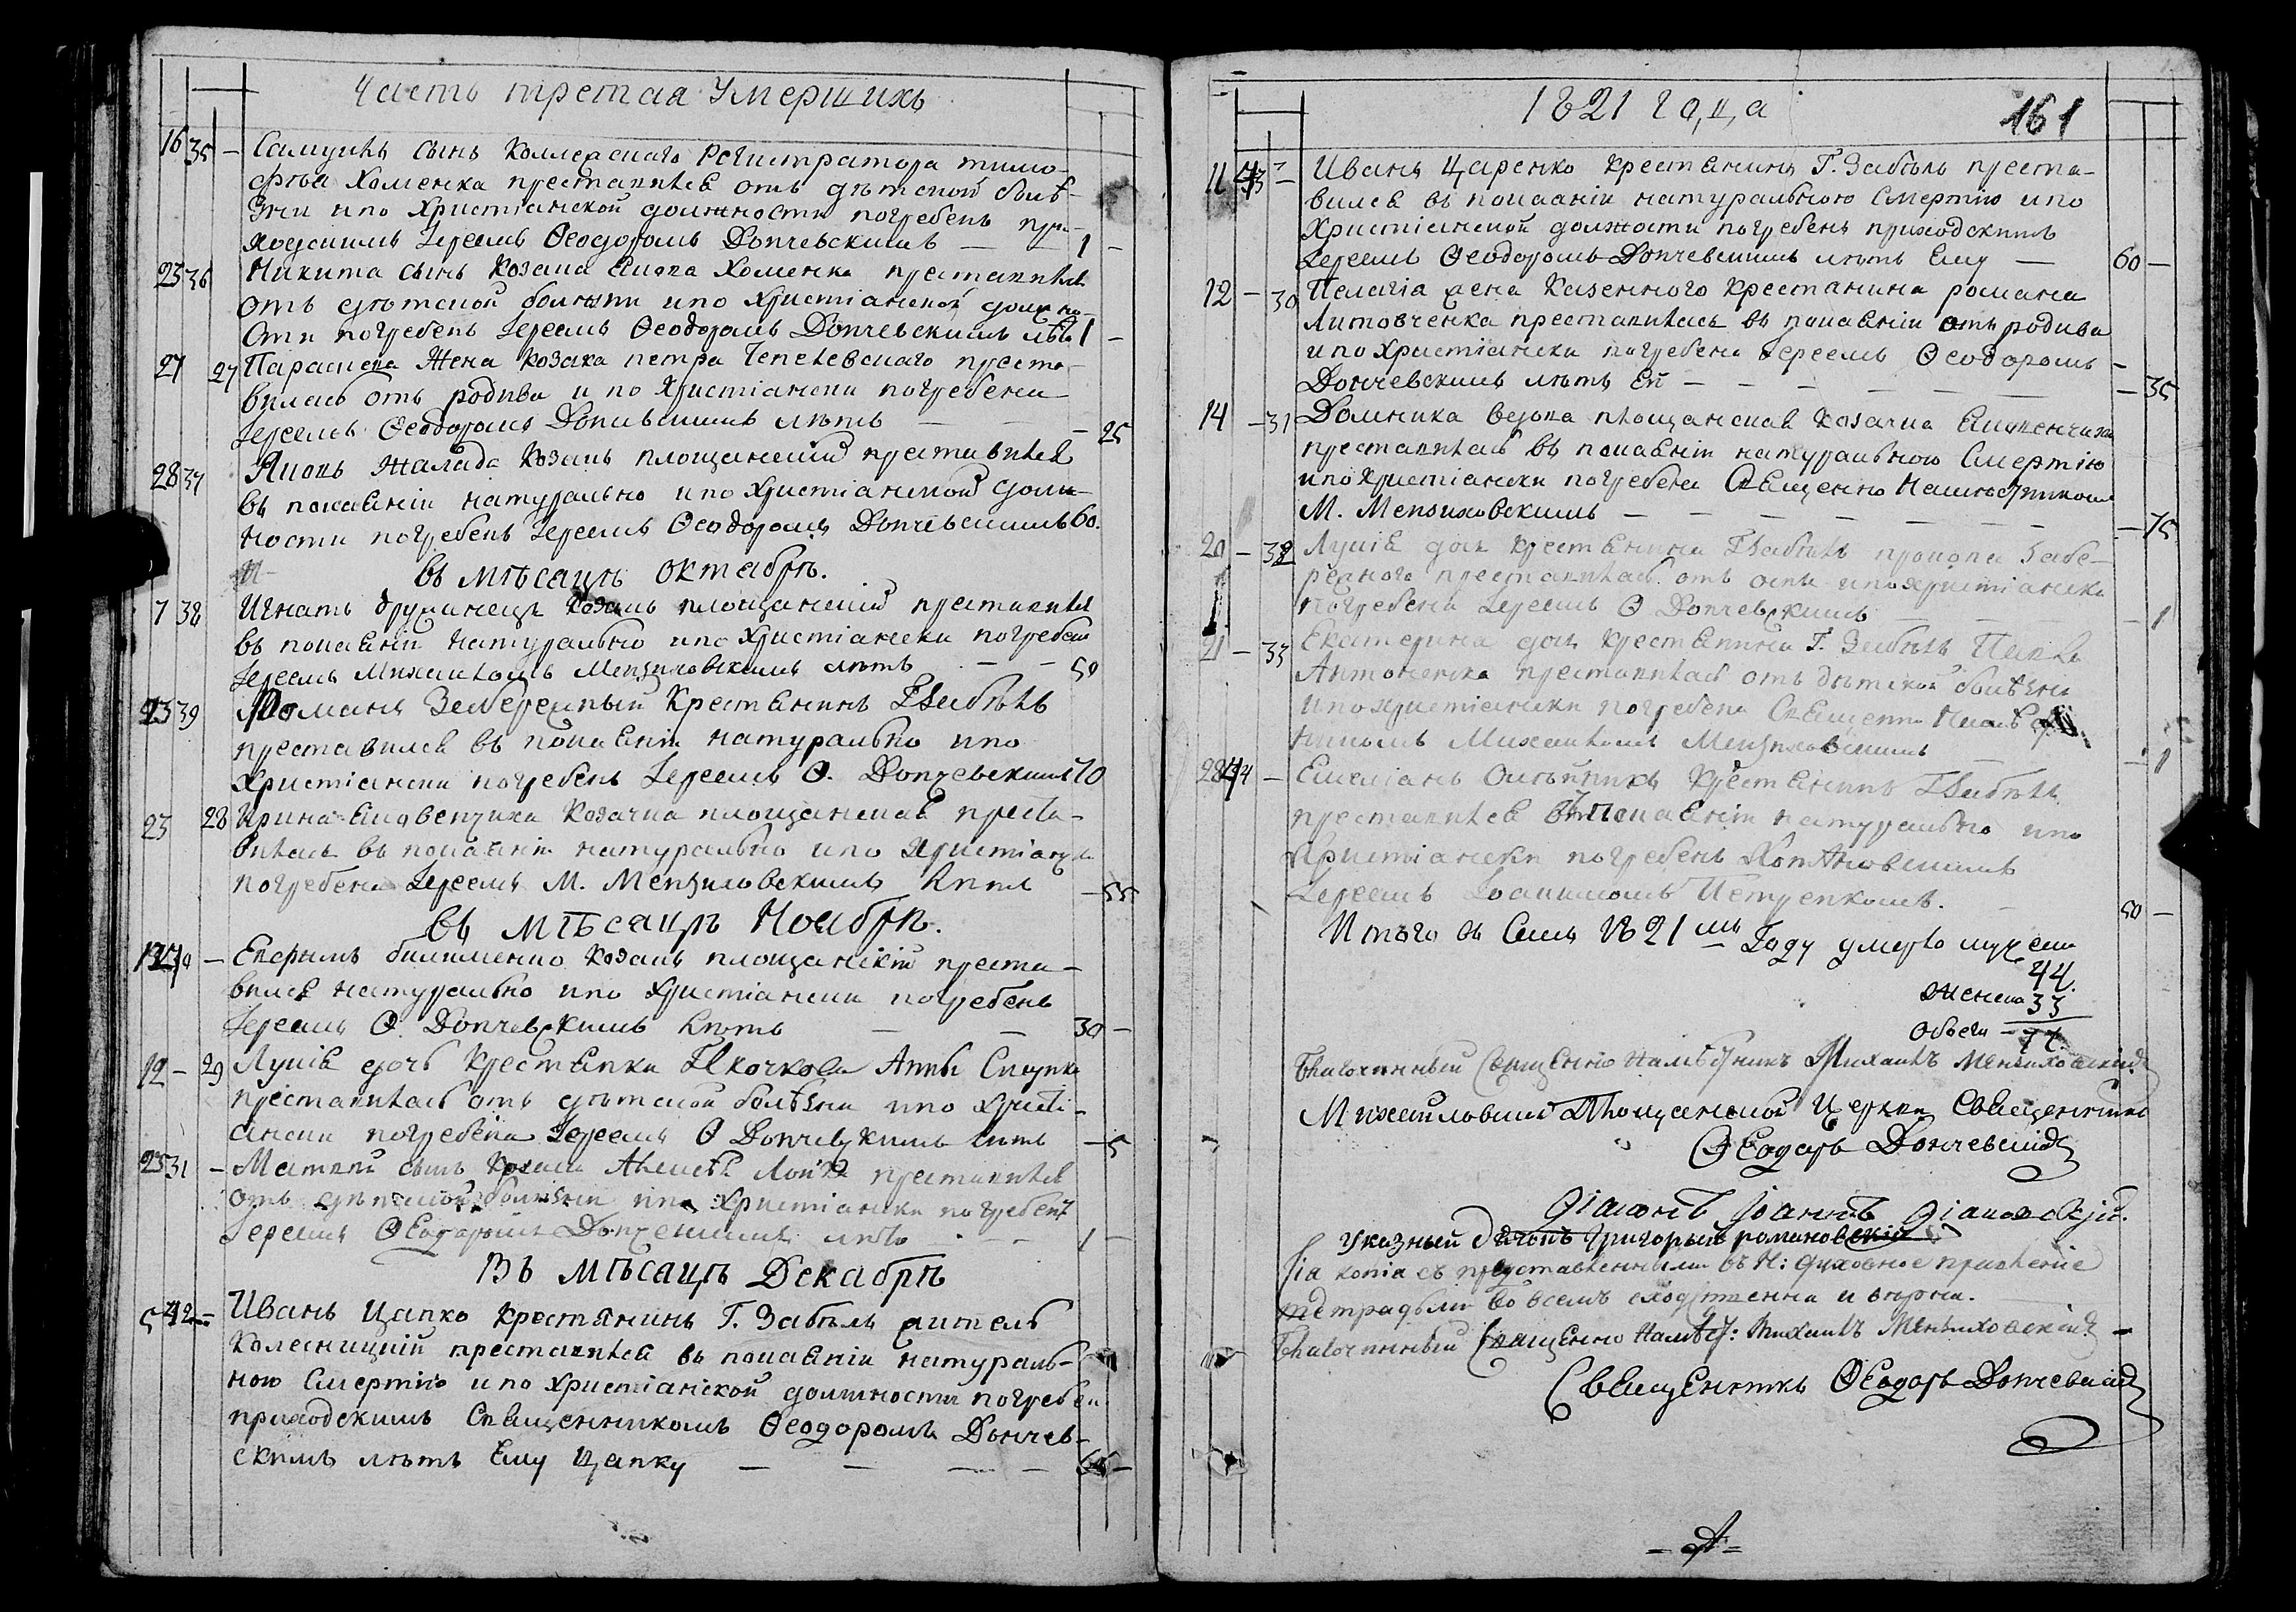 Часть третая Умершихъ
16 35 – Самуилъ сынъ Коллежскаго Регистратора тимо-
фѣа Хоменка преставился отъ дѣтской болѣ-
зни ипо Христіанской должности погребенъ при-
ходскимъ Іереемъ Ѳеодоромъ Дончевскимъ — 1 –
23 36 Никита сынъ Козака Хоменка преставился
отъ дѣтской болѣзни ипо Христіанской должно-
сти погребенъ Іереемъ Ѳеодоромъ Дончевскимъ лѣтъ 1 –
27 27 Параскева Жена Козака петра Чепелевскаго преста-
вилась отъ родива и по Христіански погребена
Іереемъ Ѳеодоромъ Дончевскимъ лѣтъ — — – 25
28 37 Яковъ Жалада Козакъ площанскій преставился
въ покаяніи натурально ипо Христіанской долж-
ности погребенъ Іереемъ Ѳеодоромъ Дончевскимъ 60.
въ мѣсяцѣ октабрѣ.
7 38 Игнатъ Козакъ площанскій преставился
въ покаяніи натурально ипо Христіански погребен
Іереемъ Михаиломъ Мензиховскимъ лѣтъ – – 50
23 39 Романъ Забережный Крестянинъ Г Забѣлъ
преставился въ покаяніи натурально ипо
Христіански погребенъ Іереемъ Ѳ. Дончевскимъ 70
23 28 Ирина Козачка площанская преста-
вилась въ покаяніи натурально ипо Христіански
погребена Іереемъ М. Мензиховскимъ лѣтъ – 55
въ мѣсяцѣ Ноябрѣ.
40 – Козакъ площанскій преста-
вился натурально ипо Христіански погребенъ
Іереемъ Ѳ. Дончевскимъ лѣтъ — — 30 –
12 – 29 Лукія дочь Крестянки Анны
преставилась отъ дѣтской болѣзни ипо Христі-
ански погребена Іереемъ Ѳ Дончевскимъ лѣтъ – 5
25 31 – Матвѣй сынъ преставился
отъ дѣтской болѣзни ипо Христіански погребенъ
Іереемъ Ѳеодоромъ Дончевскимъ лѣтъ – – 1 –
Въ мѣсяцѣ Декабрѣ
5 42 – Иванъ Цапко Крестянинъ Г. Забѣлъ житель
Колесницкій преставился въ покаяніи натураль-
ною Смертію ипо Христіанской должности погребен
приходскимъ Священникомъ Ѳеодоромъ Дончев-
скимъ лѣтъ Ему Цапку — — — –
1821 года 161
11 43 – Иванъ Царенко Крестанинъ Г. Забѣлъ преста-
вился въ покааніи натуральною Смертію ипо
Христіанской должности погребенъ приходскимъ
Іереемъ Ѳеодоромъ Дончевскимъ лѣтъ Ему — 60 –
12 – 30 Пелагіа жена Казенного Крестанина романа
Литовченка преставилась въ покааніи отъ родива
ипо Христіански погребена Іереемъ Ѳеодоромъ
Дончевскимъ лѣтъ Ей – – – – – – 35
14 – 31 Домника вдова площанская Козачка
преставилась въ покаяніи натуральною Смертію
ипо Христіански погребена Священно Намѣстникомъ
М. Мензиховскимъ – – – – – – 75
20 – 32 Лукія дочь Крестянина Г Забѣлъ Забе-
режного преставилась отъ оспы ипо Христіански
погребена Іереемъ Ѳ Дончевскимъ – – 1
21 – 33 Екатерина дочь Крестянина Г. Забѣлъ Павла
Антоненка преставилась отъ дѣтской болѣзни
ипо Христіански погребена Священно Намѣст
никомъ Михаиломъ Мензиховскимъ – – 1
28 44 – Емеліанъ Крестянинъ Г Забѣлъ
преставился въ покаяніи натурально ипо
Христіански погребенъ
Іереемъ Іоанникомъ Петренкомъ. – 50 –
Итого въ семъ 1821 мъ Году умерло муж
44.
женска 33
обоего –
Благочинный Священно намѣстникъ Михаилъ Мензиховскій
Михайловской Площанской Церкви Священникъ
Ѳеодоръ Дончевскій
Діаконъ Іоаннъ
Указный Дячокъ Григорій романовскій
Сіа копіа съ представленными въ Н: духовное правленіе
тетрадьми во всемъ сходственна и вѣрна.
Благочинный Священно Намѣст: Михаилъ Мензиховскій –
Священникъ Ѳеодоръ Дончевскій